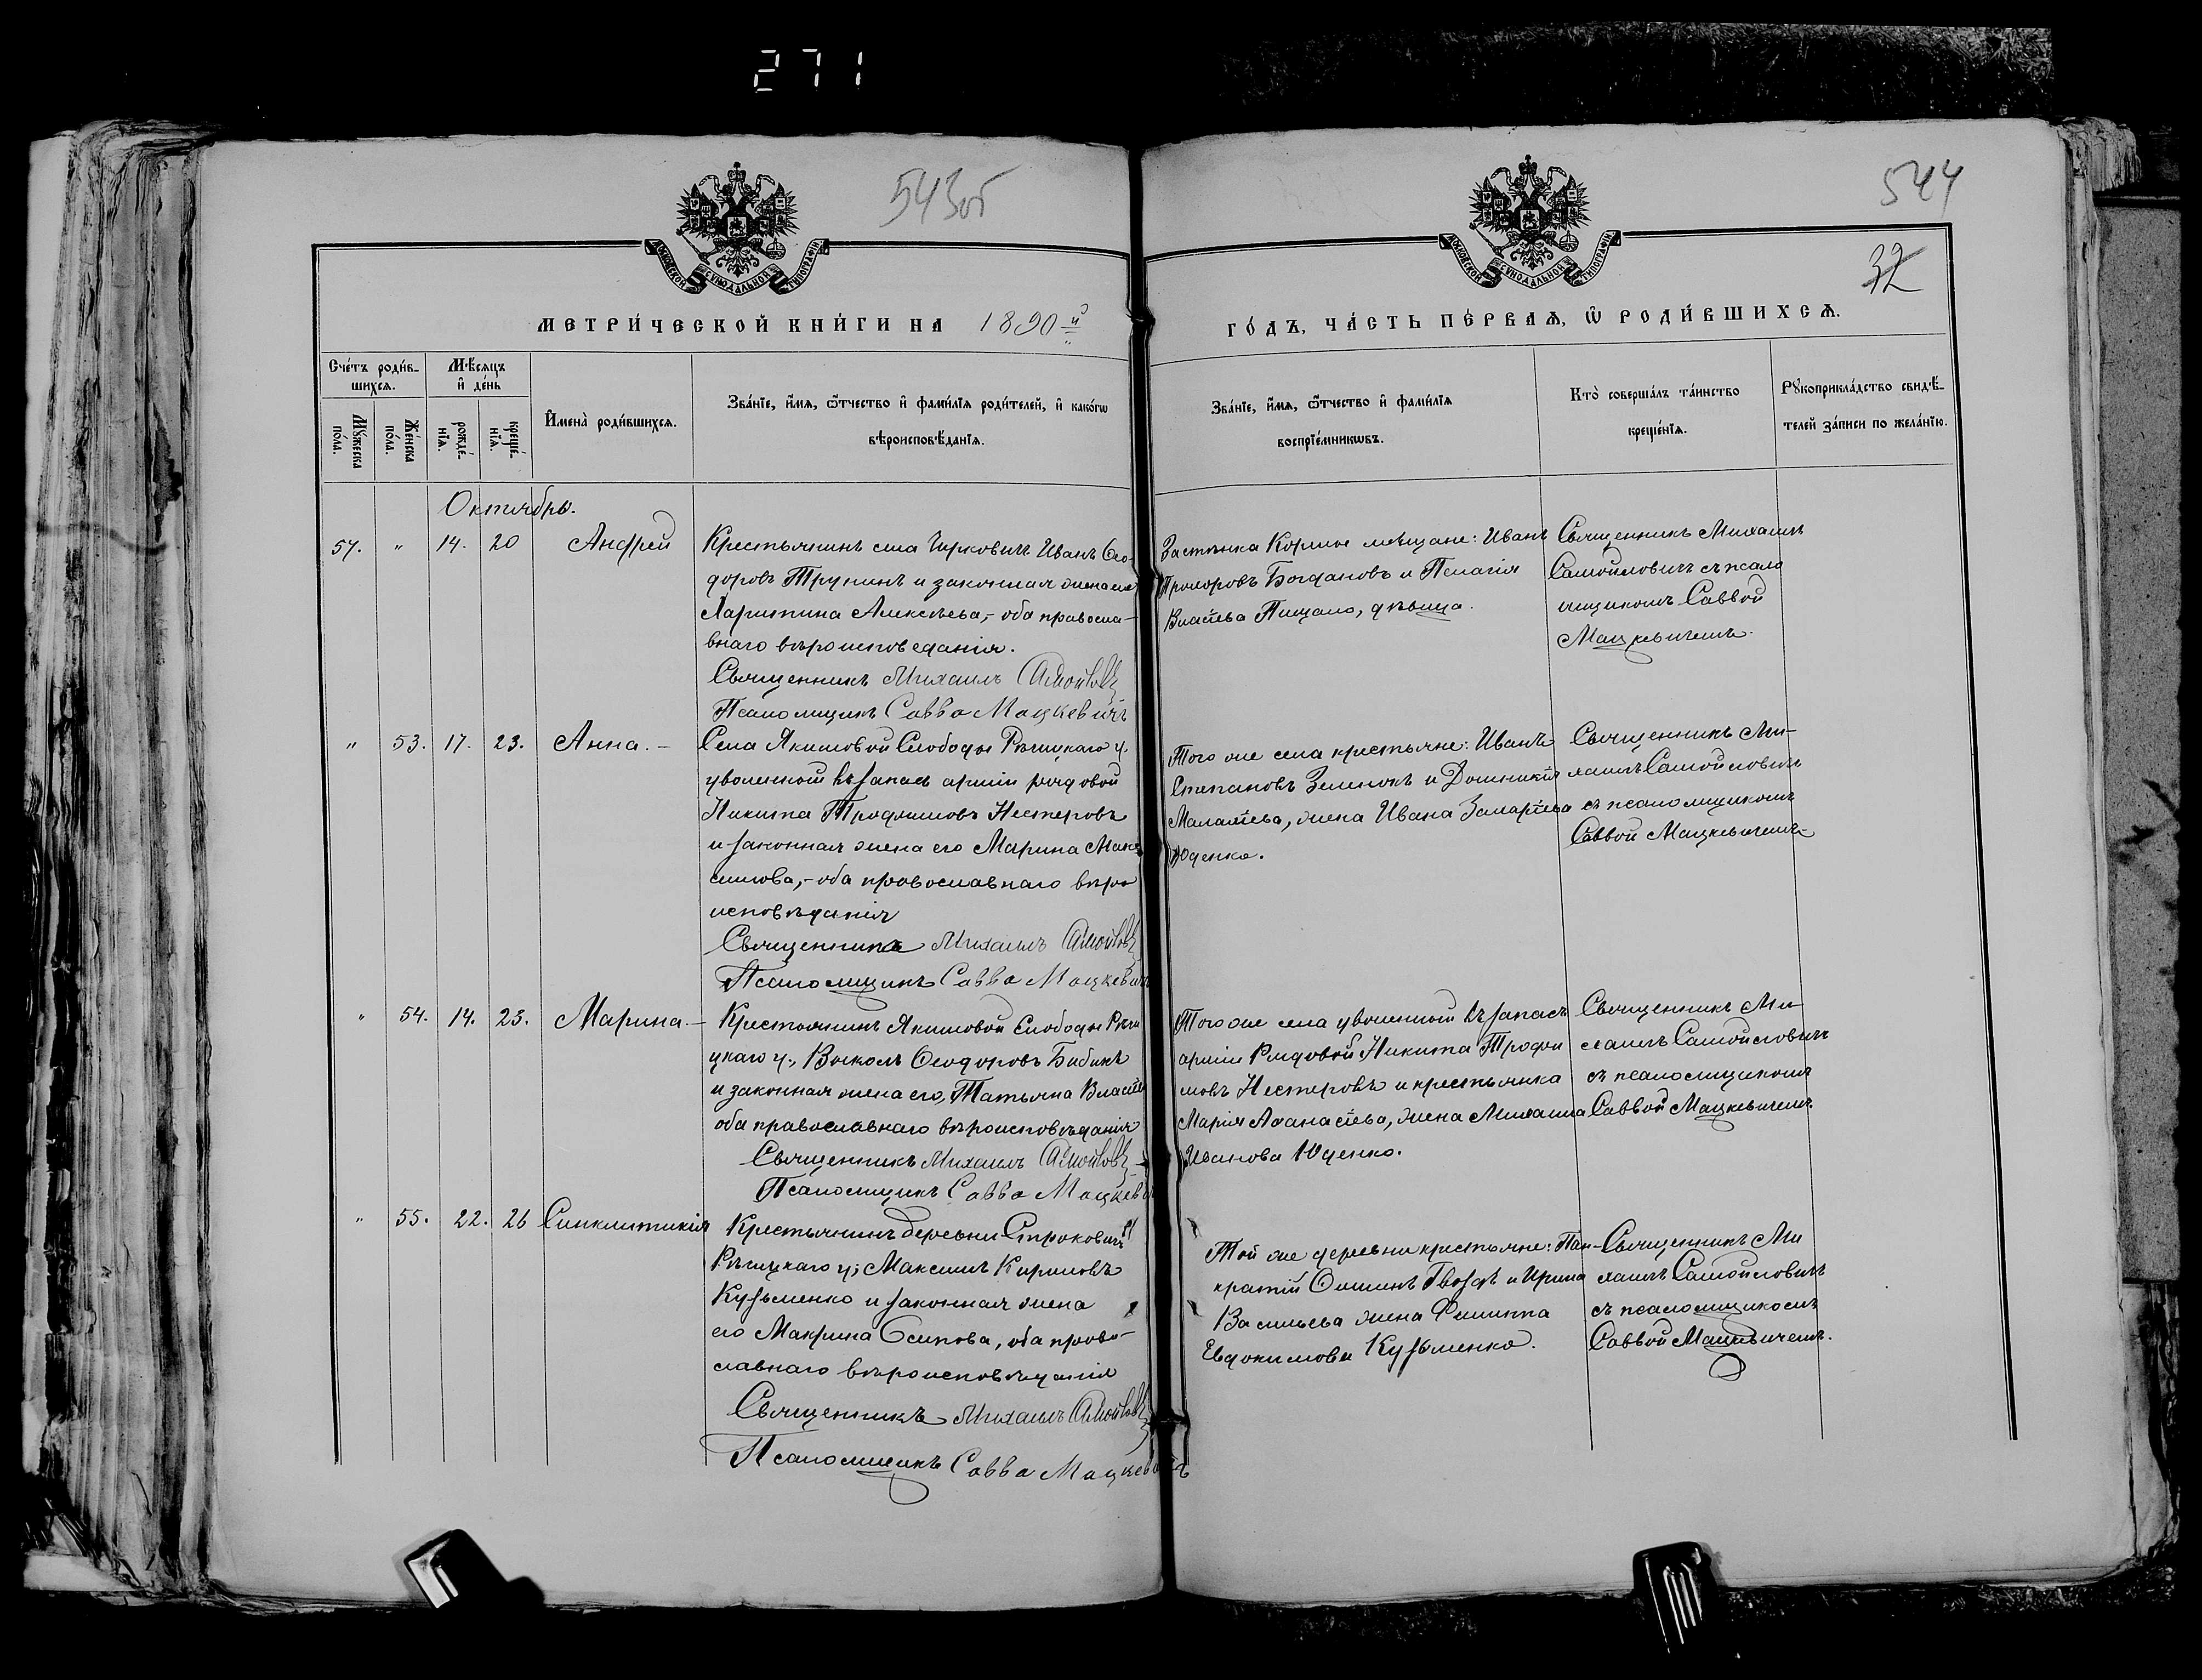 271
543об
544
32
МОСКОВСКОЙ СѴНОДАЛЬНОЙ ТИПОГРАФІИ
МОСКОВСКОЙ СѴНОДАЛЬНОЙ ТИПОГРАФІИ
МЕТРИ́ЧЕСКОЙ КНИ́ГИ НА 1890 й
ГО́ДЪ, ЧА́СТЬ ПЕ́РВАѦ, Ѡ҆ РОДИ́ВШИХСѦ.
Сче́тъ роди́в-
шихсѧ.
Мꙋ́жеска
по́ла.
Же́нска
по́ла.
Мѣ́сѧцъ
и҆ де́нь
рожде́-
нїѧ.
креще́-
нїѧ.
И҆мена̀ роди́вшихсѧ.
Зва́нїе, и҆́мѧ, ѻ҆́тчество и҆ фами́лїѧ роди́телей, и҆ како́гѡ
вѣроисповѣ́данїѧ.
Зва́нїе, и҆́мѧ, ѻ҆́тчество и҆ фами́лїѧ
воспрїе́мникѡвъ.
Кто̀ соверша́лъ та́инство
креще́нїѧ.
Рꙋкоприкла́дство свидѣ́-
телей за́писи по жела́нїю.
Октябрь.
57. " 14. 20 Андрей
Крестьянинъ села Чирковичъ Иванъ Ѳео-
доровъ Трупинъ и законная жена его
Харитина Алексѣева,- оба правосла-
внаго вѣроисповеданія.
Священникъ Михаилъ Самойлов
Псаломщикъ Савва Мацкевичъ
Застѣнка Кормое мѣщане: Иванъ
Прохоровъ Богдановъ и Пелагія
Власіева Пищало, дѣвица.
Священникъ Михаилъ
Самойловичъ съ псало
мщикомъ Саввой
Мацкевичемъ.
" 53. 17. 23. Анна. -
Села Якимовой Слободы Рѣчицкаго у.
уволенный въ запасъ арміи рядовой
Никита Трофимовъ Нестеровъ
и законная жена его Марина Мак
симова,- оба православнаго вѣро
исповѣданія
Священникъ Михаилъ Самойлов
Псаломщикъ Савва Мацкевич
Того же села крестьяне: Иванъ
Степановъ Зеленокъ и Домникія
Малаѳіева, жена Ивана Захаріева
Юденко.
Священникъ Ми-
хаилъ Самойловичъ
съ псаломщикомъ
Саввой Мацкевичемъ-
" 54. 14. 23. Марина. -
Крестьянинъ Якимовой Слободы Рѣчи
цкаго у., Восколъ Ѳеодоровъ Бибикъ
и законная жена его, Татьяна Власіев
оба православнаго вѣроисповѣданія
Священникъ Михаилъ Самойлов
Псаломщикъ Савва Мацкеви
Того же села уволенный въ запасъ
арміи Рядовой Никита Трофи
мовъ Нестеровъ и крестьянка
Марія Аѳанасіева, жена Михаила
Иванова Юденко.
Священникъ Ми-
хаилъ Самойловичъ
съ псаломщикомъ
Саввой Мацкевичемъ.
" 55. 22. 26 Синклитикія
Крестьянинъ деревни Строковичъ
Рѣчицкаго у; Максимъ Кириловъ
Кузьменко и законная жена
его Макрина Осипова, оба право-
славнаго вѣроисповѣданія
Священникъ Михаилъ Самойлов
Псаломщикъ Савва Мацкевичъ
Той же деревни крестьяне: Пан-
кратій Ѳоминъ Гвоздь и Ирина
Васильева жена Филиппа
Евдокимова Кузьменко.
Священникъ Ми
хаилъ Самойловичъ
съ псаломщикомъ
Саввой Мацкевичемъ.